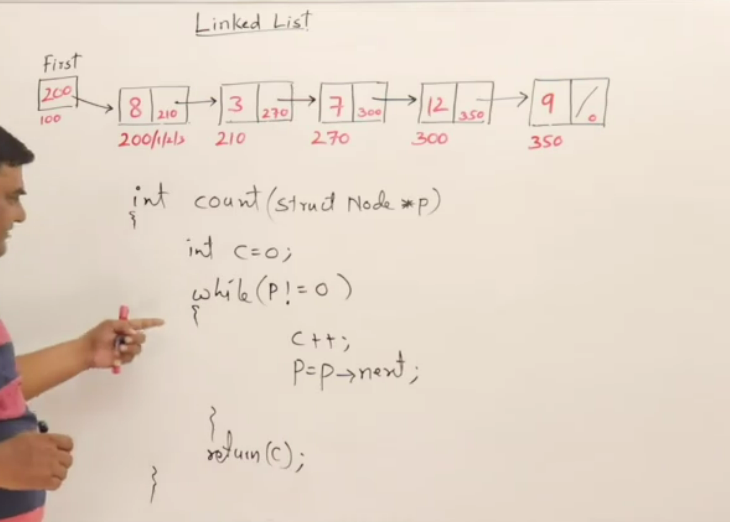 Linked List
First
200
100
8 210 3 270 7 300 12 350 9
200/1/2/3 210 270 300 350
int count(struct Node *p)
{
int c=0;
while(p!=0)
{
c++;
p=p→next;
}
return(c);
}